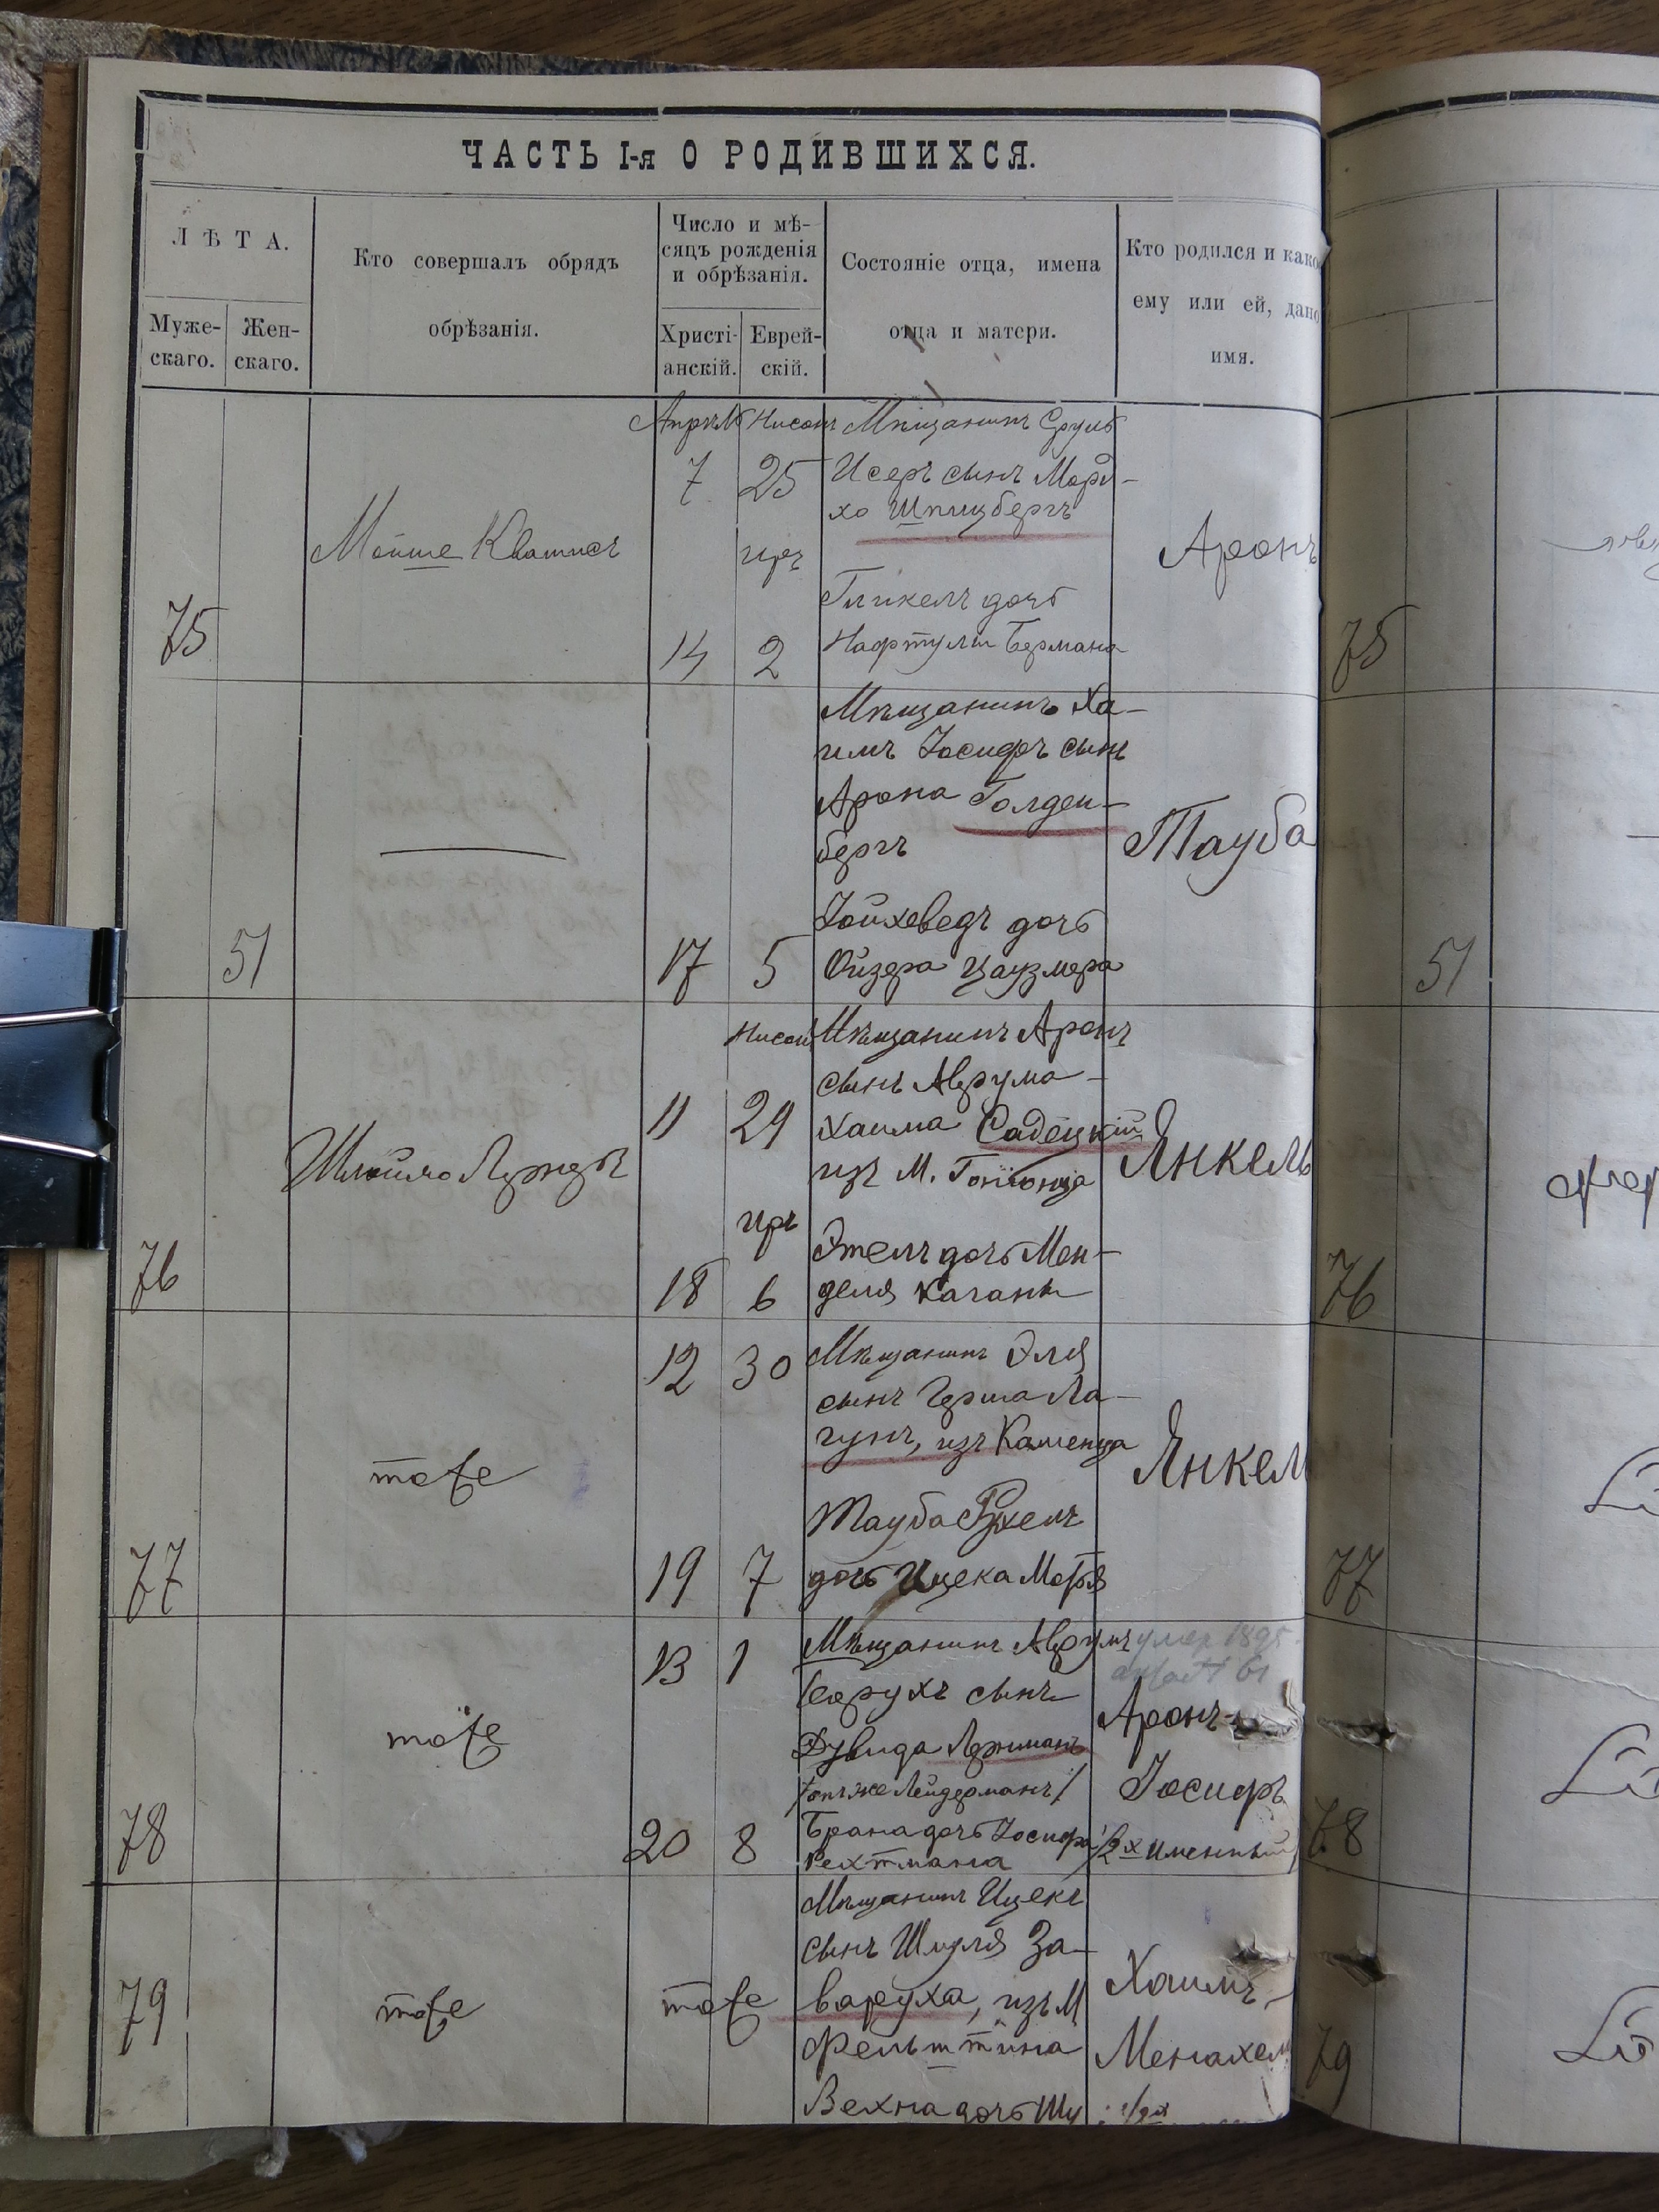 ЧАСТЬ I-я О РОДИВШИХСЯ.
ЛѢТА.
Муже-
скаго.
Жен-
скаго.
Кто совершалъ обрядъ
обрѣзанія.
Число и мѣ-
сяцъ рожденія
и обрѣзанія.
Христі-
анскій.
Еврей-
скій.
Состояніе отца, имена
отца и матери.
Кто родился и како
ему или ей, дано
имя.
75
Мойше
7
14
Нисонъ
25
иръ
2
Мѣщанинъ Сруль
Исеръ сынъ Морд-
хо Шпицбергъ
дочь
Нафтули Бермана
Аронъ
75
51
17
5
Мѣщанинъ Ха-
имъ Іосифъ сынъ
Арона Голден-
бергъ
Іойхеведъ дочь
Ойзера Цаузмера
Тауба
51
76
Шлоймо
11
18
Нисонъ
29
иръ
6
Мѣщанинъ Аронъ
сынъ Аврума-
Хаима Садецкій
изъ М.
Этель дочь Мен-
деля Кагана
Янкель
76
77
тоже
12
19
30
7
Мѣщанинъ Эля
сынъ Герша Ла-
гунъ, изъ Каменца
Тауба Рухель
дочь Ицека
Янкел
77
78
тоже
13
20
1
8
Мѣщанинъ Аврумъ
Борухъ сынъ
Дувида
/онъ же Лейдерманъ/
Брана дочь Іосифа
Рехтмана
умер 1895
61
Аронъ-
Іосифъ
/2х именный/
78
79
тоже
тоже
Мѣщанинъ Ицекъ
сынъ Шмуля За-
варуха, изъ М
Фельштина
Вехна дочь Шу
Хаимъ-
Менахем
79